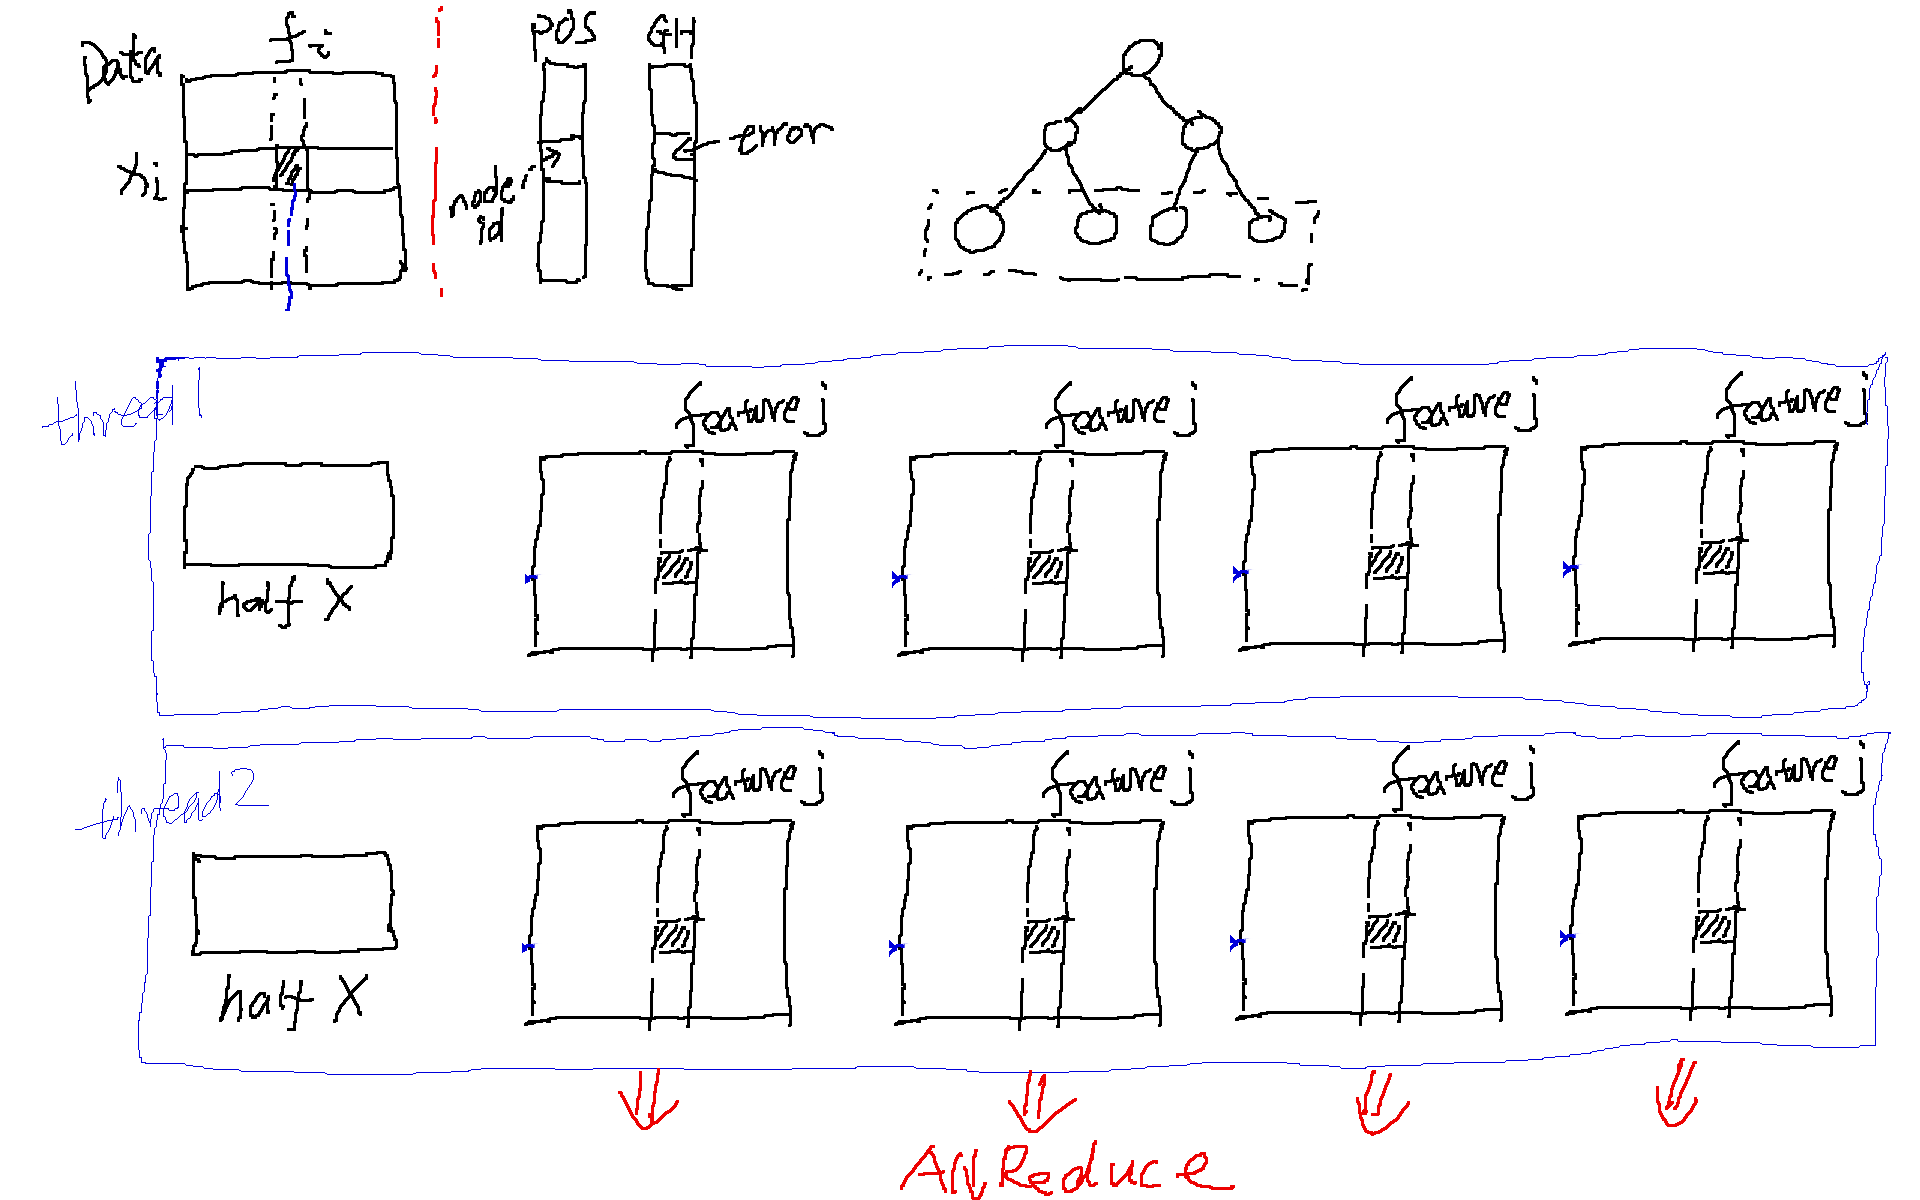 Data
fi
POS
GH
xi
node id
error
thread 1
feature j
feature j
feature j
feature j
half X
thread 2
feature j
feature j
feature j
feature j
half X
AllReduce